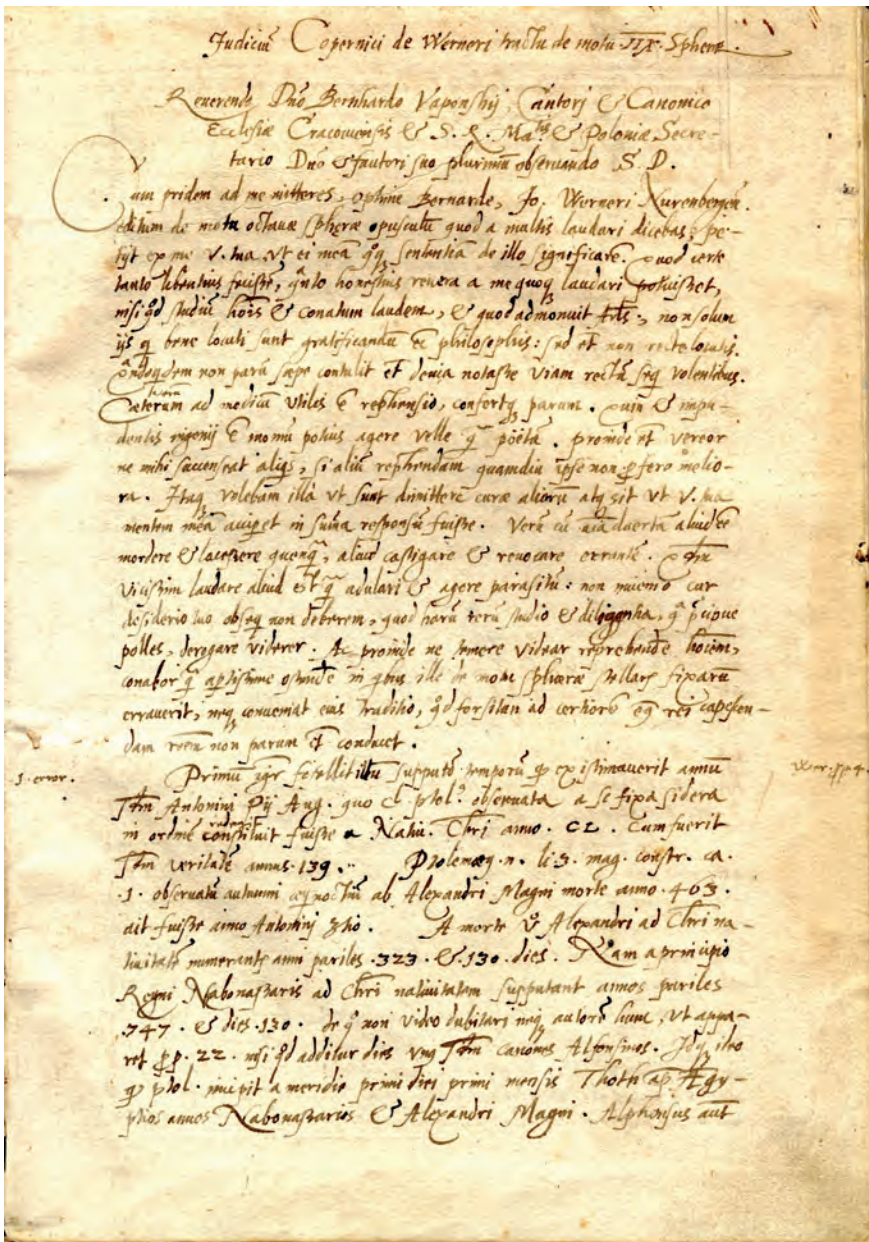 Judiciũ Copernici de Werneri tractu de motu IIX Spheræ.
Reverendo Dño Bernhardo Vapouskij, Cantorj & Canonico
Ecclesiæ Cracoviensis & S. R. Ma.tis & Poloniæ Secre-
tario Dño & fautori suo plurimũ observando S. D.
Cum pridem ad me mitteres, optime Bernarde, Jo. Werneri Nurenbergeñ.
editum de motu octauæ spheræ opusculũ quod a multis laudari dicebas, pe-
tijt ex me V. tua vt ei meã qq sententiã de illo significarẽ. Quod certe
tanto libentius fecissẽ, q̃nto honestius revera a me quoq laudari potuisset,
nisi qd studiũ hoĩs & conatum laudem, & quod admonuit Arts., non solum
ijs q bene locuti sunt gratificandũ eẽ philosophis: sed et non recte locutis.
Qñdoqdem non parũ sæpe contulit et devia notasse viam rectã seq volentibus.
Cæterum ad modicũ vtilis ẽ reph̃ensio, confertq parum. Quin & impu-
tamen
dentis ingenij ẽ momũ potius agere velle q̃ poëtã. Proinde et vereor
ne mihi succenseat aliqs, si aliũ reph̃endam quamdiu ipse non pfero melio-
ra. Itaq volebam illa vt sunt dimittere curæ aliorũ atq sit vt V. tua
mentem meã acciperet in sum̃a responsũ fuisse. Verũ cũ aĩaduertã aliud eẽ
mordere & lacessere quenq̃, aliud castigare & revocare errantẽ. Qm̃
vicissim laudare aliud est q̃ adulari & agere parasitũ: non invenio cur
desiderio tuo obseq non deberem, quod harũ rerũ studio & diligentia, q̃ pcipue
polles, derogare viderer. Ac proinde ne temere videar reprehendẽ hoĩem,
conabor q̃ aptissime ostendẽ in qbus ille de motu sphæræ stellarũ fixarũ
erraverit, neq conveniat eius traditio, qd forsitan ad certiorẽ eq rei capessen-
dam rõem non parum et conducet.
1. error.
Primũ igr fefellit illũ supputõ temporũ q existimaverit annũ
Antonini Pij Aug. quo Cl ptol.9 observata a se fixa sidera
in ordinẽ constituit fuisse a Nativ. Chri anno. CL. Cum fuerit
redegit
veritatẽ annus 139. Ptolemæq .n. li 3. mag. constr. ca.
.1. observatũ autumni æquinoctiũ ab Alexandri Magni morte anno .463.
ait fuisse anno Antoninj 3tio. A morte Alexandri ad Chri na-
tivitatẽ numerantq anni pariles .323. & .130. dies. Nam a principio
Regni Nabonassaris ad Chri nativitatem supputant annos pariles
.747. & dies .130. de q non video dubitari neq autorẽ hunc, vt appa-
ret pp. 22. nisi qd additur dies vnq canones Alfonsinos. Idq ideo
q ptol. incipit a meridie primi diei primi mensis Thoth ap. Ægy-
ptios annos Nabonassarios & Alexandri Magni. Alphonsus aut̃